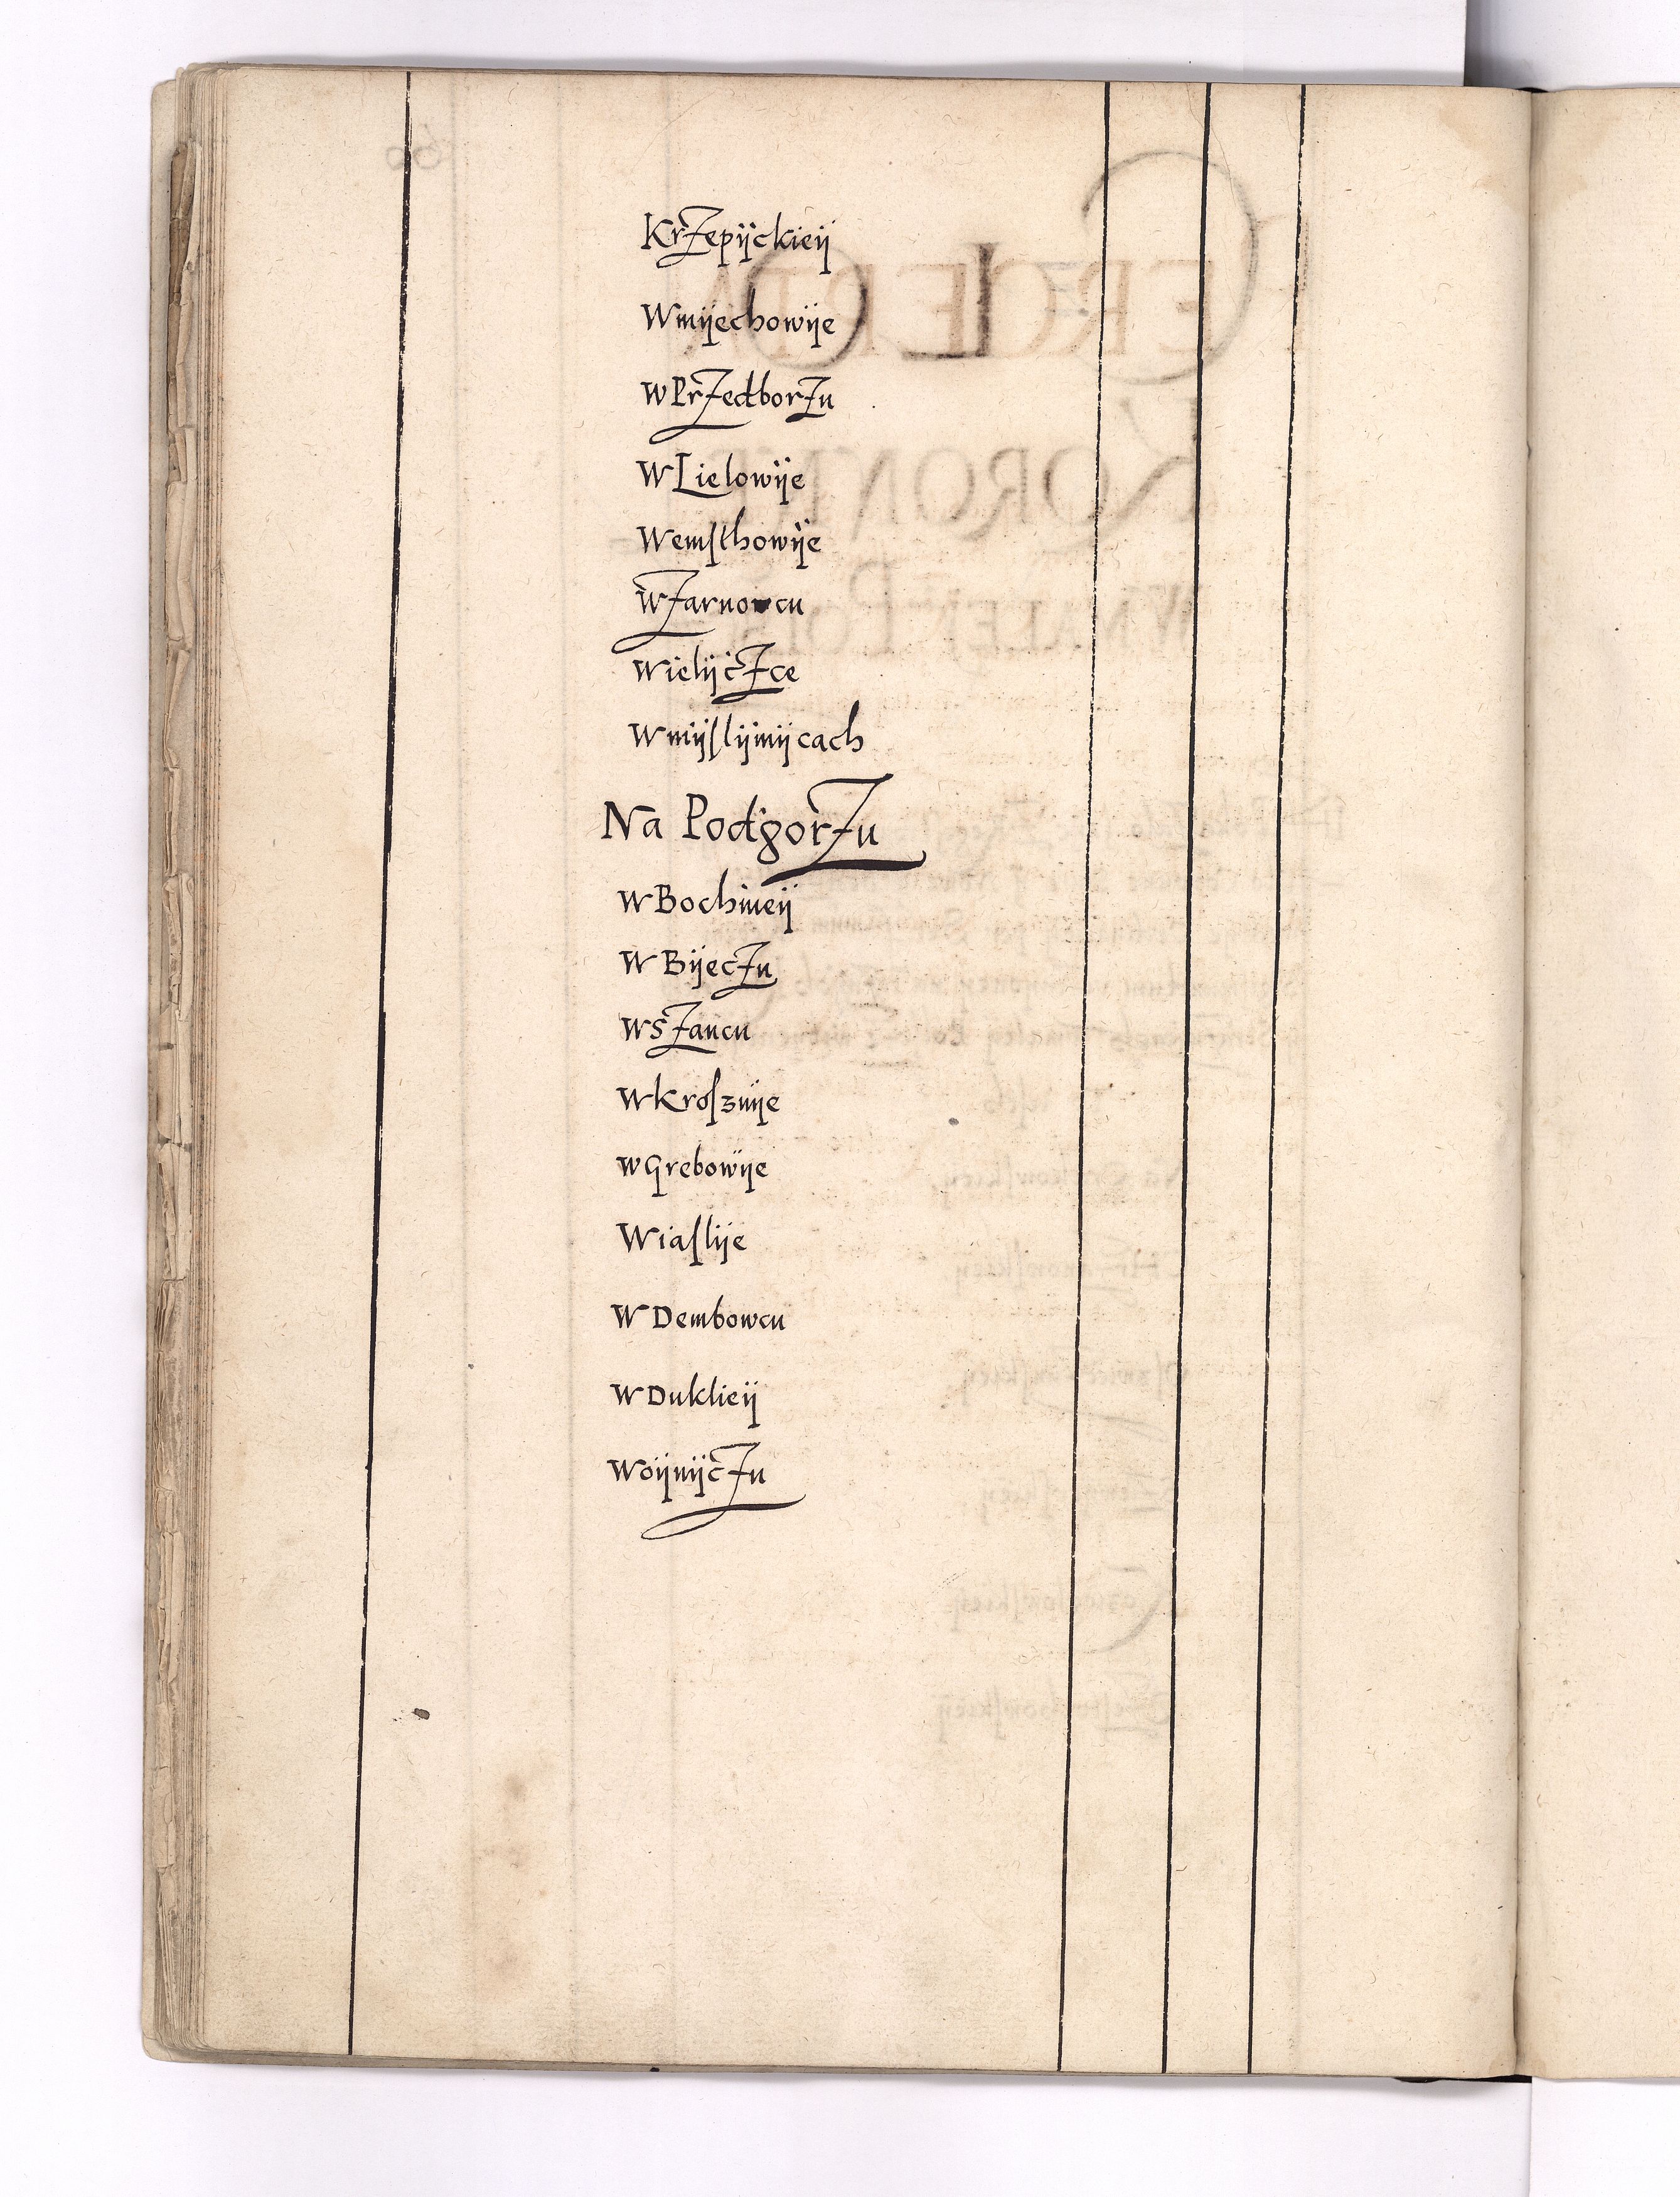 KrZepijckieij
Wmijechowije
W PrZedborZu
W Lielowije
Wemſthowije
WZarnowcu
WielijcZce
Wmijſlijmijcach
Na PodgorZu
W Bochnieij
W BijecZu
W SZancu
W Kroſznije
W Grebowije
Wiaſlije
W Dembowcu
W Duklieij
WoijnijcZu